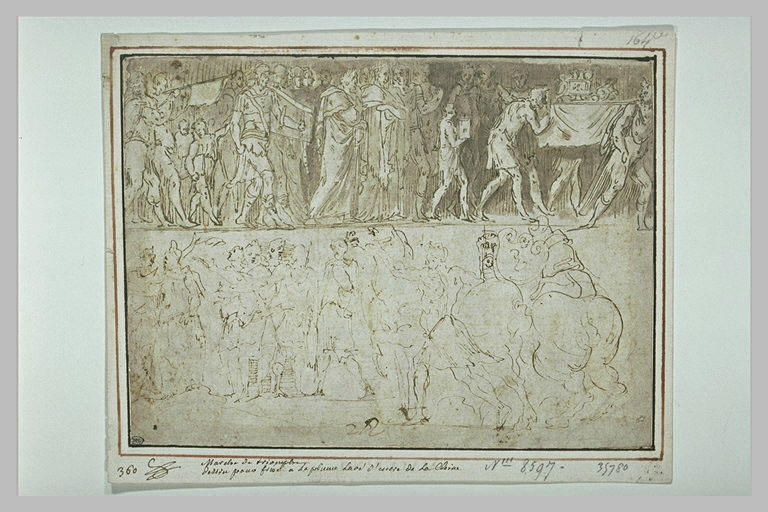 164
Marche de triomphe
360 dessin pour frise a la plume lavé d'encre de la Chine N.III 8597. 35780